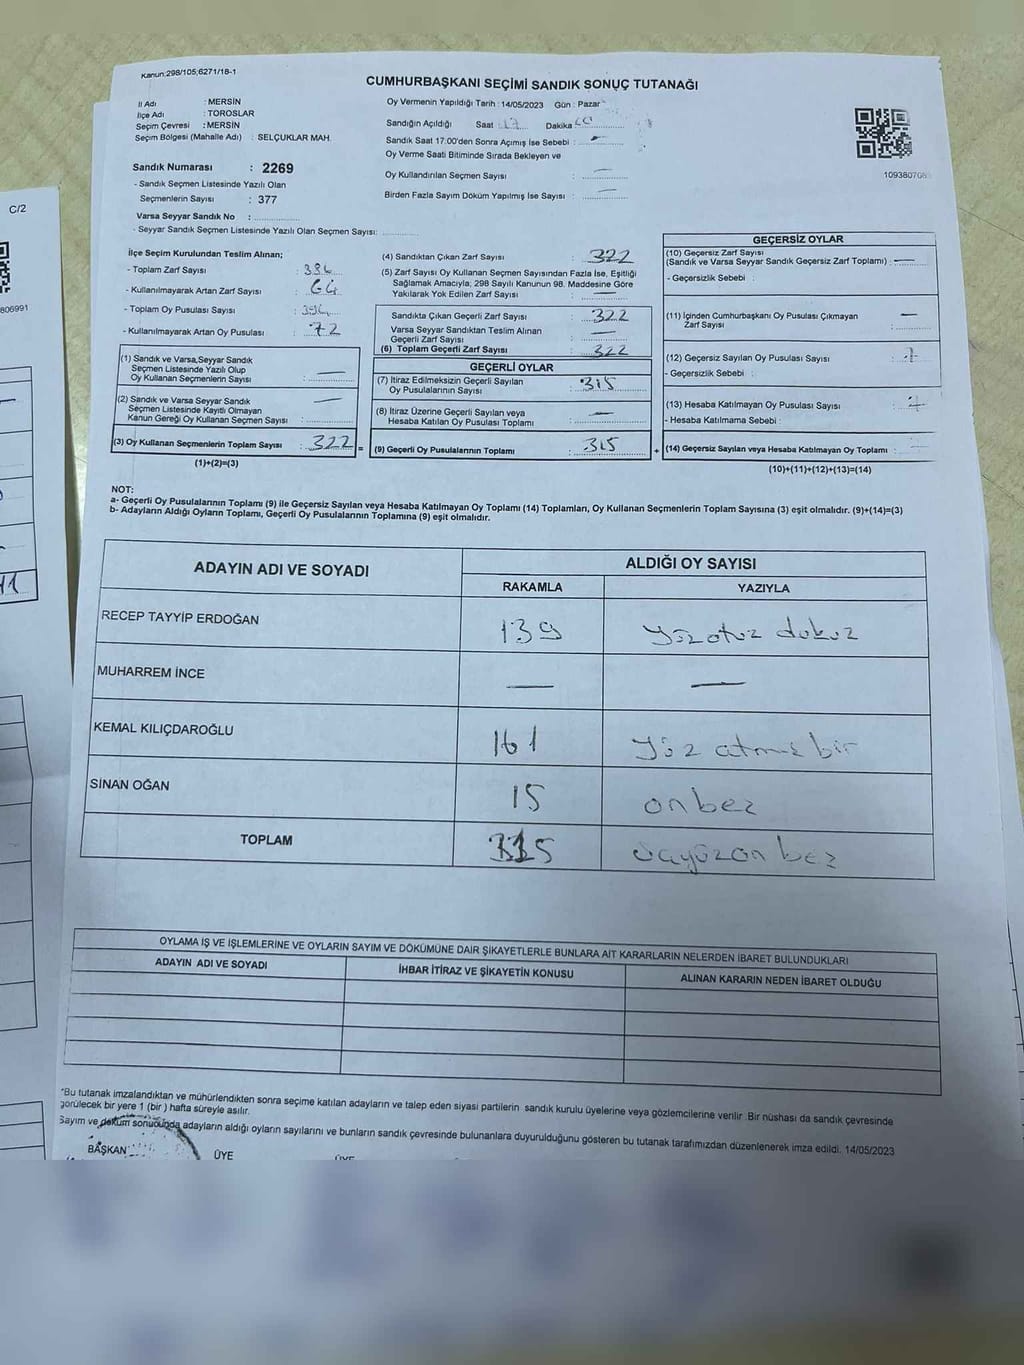 Kanun:298/105;6271/18-1
CUMHURBAŞKANI SEÇİMİ SANDIK SONUÇ TUTANAĞI
İl Adı : MERSİN
İlçe Adı : TOROSLAR
Seçim Çevresi : MERSİN
Seçim Bölgesi (Mahalle Adı) : SELÇUKLAR MAH.
Sandık Numarası : 2269
- Sandık Seçmen Listesinde Yazılı Olan
Seçmenlerin Sayısı : 377
Varsa Seyyar Sandık No :
- Seyyar Sandık Seçmen Listesinde Yazılı Olan Seçmen Sayısı:
Oy Vermenin Yapıldığı Tarih : 14/05/2023 Gün : Pazar
Sandığın Açıldığı Saat : 17 Dakika
Sandık Saat 17:00'den Sonra Açımış İse Sebebi : —
Oy Verme Saati Bitiminde Sırada Bekleyen ve
Oy Kullandırılan Seçmen Sayısı : —
Birden Fazla Sayım Döküm Yapılmış İse Sayısı : —
1093807
C/2
806991
İlçe Seçim Kurulundan Teslim Alınan;
- Toplam Zarf Sayısı :
- Kullanılmayarak Artan Zarf Sayısı : 64
- Toplam Oy Pusulası Sayısı :
- Kullanılmayarak Artan Oy Pusulası : 72
(1) Sandık ve Varsa,Seyyar Sandık
Seçmen Listesinde Yazılı Olup
Oy Kullanan Seçmenlerin Sayısı : —
(2) Sandık ve Varsa Seyyar Sandık
Seçmen Listesinde Kayıtlı Olmayan
Kanun Gereği Oy Kullanan Seçmen Sayısı : —
(3) Oy Kullanan Seçmenlerin Toplam Sayısı : 322 =
(1)+(2)=(3)
(4) Sandıktan Çıkan Zarf Sayısı : 322
(5) Zarf Sayısı Oy Kullanan Seçmen Sayısından Fazla İse, Eşitliği
Sağlamak Amacıyla; 298 Sayılı Kanunun 98. Maddesine Göre
Yakılarak Yok Edilen Zarf Sayısı : —
Sandıkta Çıkan Geçerli Zarf Sayısı : 322
Varsa Seyyar Sandıktan Teslim Alınan
Geçerli Zarf Sayısı : —
(6) Toplam Geçerli Zarf Sayısı : 322
GEÇERLİ OYLAR
(7) İtiraz Edilmeksizin Geçerli Sayılan
Oy Pusulalarının Sayısı : 315
(8) İtiraz Üzerine Geçerli Sayılan veya
Hesaba Katılan Oy Pusulası Toplamı : —
(9) Geçerli Oy Pusulalarının Toplamı : 315 +
GEÇERSİZ OYLAR
(10) Geçersiz Zarf Sayısı
(Sandık ve Varsa Seyyar Sandık Geçersiz Zarf Toplamı) : —
- Geçersizlik Sebebi :
(11) İçinden Cumhurbaşkanı Oy Pusulası Çıkmayan
Zarf Sayısı : —
(12) Geçersiz Sayılan Oy Pusulası Sayısı : 7
- Geçersizlik Sebebi :
(13) Hesaba Katılmayan Oy Pusulası Sayısı :
- Hesaba Katılmama Sebebi :
(14) Geçersiz Sayılan veya Hesaba Katılmayan Oy Toplamı :
(10)+(11)+(12)+(13)=(14)
NOT:
a- Geçerli Oy Pusulalarının Toplamı (9) ile Geçersiz Sayılan veya Hesaba Katılmayan Oy Toplamı (14) Toplamları, Oy Kullanan Seçmenlerin Toplam Sayısına (3) eşit olmalıdır. (9)+(14)=(3)
b- Adayların Aldığı Oyların Toplamı, Geçerli Oy Pusulalarının Toplamına (9) eşit olmalıdır.
ADAYIN ADI VE SOYADI ALDIĞI OY SAYISI
RAKAMLA YAZIYLA
RECEP TAYYİP ERDOĞAN 139 yüzotuz dokuz
MUHARREM İNCE — —
KEMAL KILIÇDAROĞLU 161 yüz atmış bir
SİNAN OĞAN 15 onbeş
TOPLAM 315 üçyüzon beş
OYLAMA İŞ VE İŞLEMLERİNE VE OYLARIN SAYIM VE DÖKÜMÜNE DAİR ŞİKAYETLERLE BUNLARA AİT KARARLARIN NELERDEN İBARET BULUNDUKLARI
ADAYIN ADI VE SOYADI İHBAR İTİRAZ VE ŞİKAYETİN KONUSU ALINAN KARARIN NEDEN İBARET OLDUĞU
*Bu tutanak imzalandıktan ve mühürlendikten sonra seçime katılan adayların ve talep eden siyasi partilerin sandık kurulu üyelerine veya gözlemcilerine verilir. Bir nüshası da sandık çevresinde
görülecek bir yere 1 (bir ) hafta süreyle asılır.
Sayım ve döküm sonucunda adayların aldığı oyların sayılarını ve bunların sandık çevresinde bulunanlara duyurulduğunu gösteren bu tutanak tarafımızdan düzenlenerek imza edildi. 14/05/2023
BAŞKAN ÜYE ÜYE